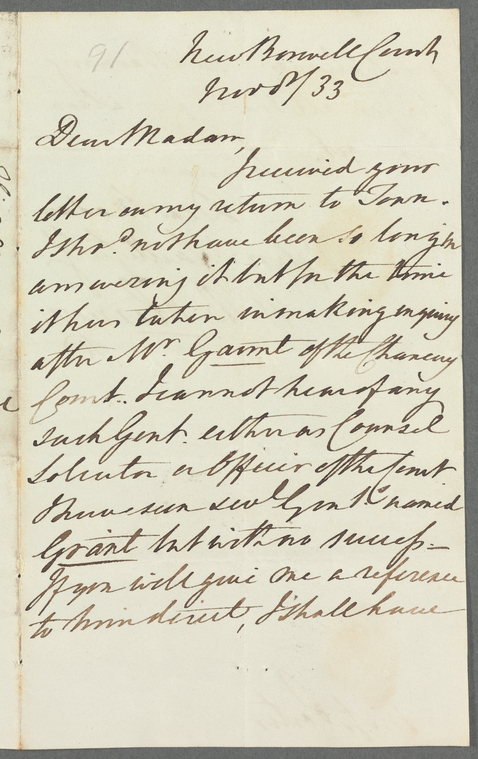 91
New Boswell Court
Nov 8/33
Dear Madam,
I received your
letter on my return to Town.
I sho.d not have been so long in
answering it but for the time
it has taken in making inquiry
after Mr. Gaunt of the Chancery
Court. I cannot hear of any
such Gent. either as Counsel
Solicitor or Officer of the Court
I have seen sevl. Gent.s named
Grant but with no success—
If you will give me a reference
to him direct, I shall have